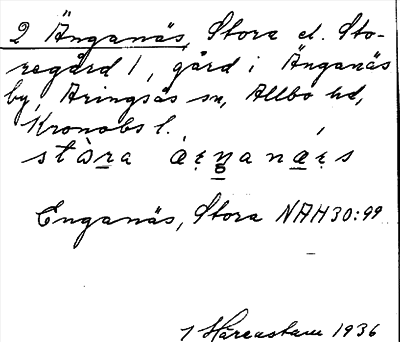 2 Änganäs, Stora el. Sto-
regård 1, gård i Änganäs
by, Aringsås sn, Allbo hd,
Kronobs l.
stòra
Enganäs, Stora NAH 30:99
1936